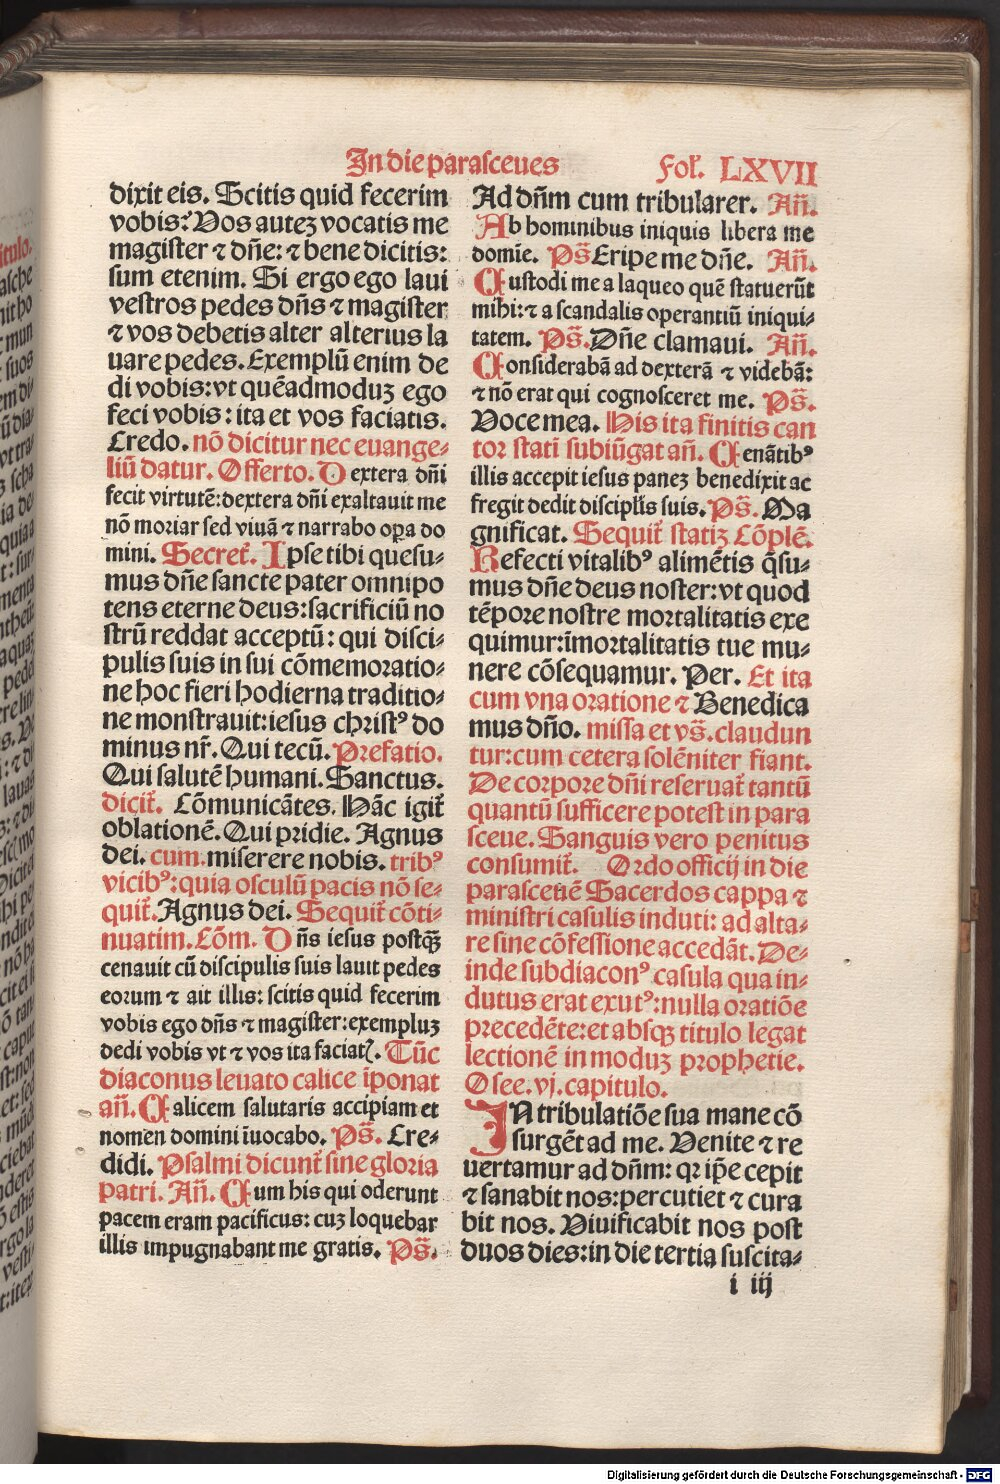 In die parasceues Fol. LXVII
dixit eis. Scitis quid fecerim
vobis? Vos autez vocatis me
magister ⁊ dn̄e: ⁊ bene dicitis:
sum etenim. Si ergo ego laui
vestros pedes dn̄s ⁊ magister
⁊ vos debetis alter alterius la
uare pedes. Exemplū enim de
di vobis: vt quēadmoduz ego
feci vobis: ita et vos faciatis.
Credo. nō dicitur nec euange-
liū datur. Offerto. Dextera dn̄i
fecit virtutē: dextera dn̄i exaltauit me
nō moriar sed viuā ⁊ narrabo oꝑa do
mini. Secret̄. Ipse tibi quesu-
mus dn̄e sancte pater omnipo
tens eterne deus: sacrificiū no
strū reddat acceptū: qui disci-
pulis suis in sui cōmemoratio-
ne hoc fieri hodierna traditio-
ne monstrauit: iesus christꝰ do
minus nr̄. Qui tecū. Prefatio.
Qui salutē humani. Sanctus.
dicit̄. Cōmunicātes. Hāc igit̄
oblationē. Qui pridie. Agnus
dei. cum. miserere nobis. tribꝰ
vicibꝰ: quia osculū pacis nō se-
quit̄. Agnus dei. Sequit̄ cōti-
nuatim. Cōm. Dn̄s iesus postqȝ̄
cenauit cū discipulis suis lauit pedes
eorum ⁊ ait illis: scitis quid fecerim
vobis ego dn̄s ⁊ magister: exempluz
dedi vobis vt ⁊ vos ita faciatꝭ. Tūc
diaconus leuato calice īponat
an̄. Calicem salutaris accipiam et
nomen domini īuocabo. Ps̄. Cre-
didi. Psalmi dicunt̄ sine gloria
patri. An̄. Cum his qui oderunt
pacem eram pacificus: cuz loquebar
illis impugnabant me gratis. Ps̄.
Ad dn̄m cum tribularer. An̄.
Ab hominibus iniquis libera me
domīe. Ps̄ Eripe me dn̄e. An̄.
Custodi me a laqueo quē statuerūt
mihi: ⁊ a scandalis operantiū iniqui-
tatem. Ps̄. Dn̄e clamaui. An̄.
Considerabā ad dexterā ⁊ videbā:
⁊ nō erat qui cognosceret me. Ps̄.
Voce mea. His ita finitis can
tor statī subiūgat an̄. Cenātibꝰ
illis accepit iesus panez benedixit ac
fregit dedit discipl̄is suis. Ps̄. Ma
gnificat. Sequit̄ statiz Cōplē.
Refecti vitalibꝰ alimētis q̄su-
mus dn̄e deus noster: vt quod
tēpore nostre mortalitatis exe
quimur: īmortalitatis tue mu-
nere cōsequamur. Per. Et ita
cum vna oratione ⁊ Benedica
mus dn̄o. missa et vs̄. claudun
tur: cum cetera solēniter fiant.
De corpore dn̄i reseruat̄ tantū
quantū sufficere potest in para
sceue. Sanguis vero penitus
consumit̄. Ordo officij in die
parasceuē Sacerdos cappa ⁊
ministri casulis induti: ad alta-
re sine cōfessione accedāt. De-
inde subdiaconꝰ casula qua in-
dutus erat exutꝰ: nulla oratiōe
precedēte: et absqȝ titulo legat
lectionē in moduz prophetie.
Osee. vj. capitulo.
In tribulatiōe sua mane cō
surgēt ad me. Venite ⁊ re
uertamur ad dn̄m: qr ip̄e cepit
⁊ sanabit nos: percutiet ⁊ cura
bit nos. Viuificabit nos post
duos dies: in die tertia suscita-
i iij
Digitalisierung gefördert durch die Deutsche Forschungsgemeinschaft - DFG